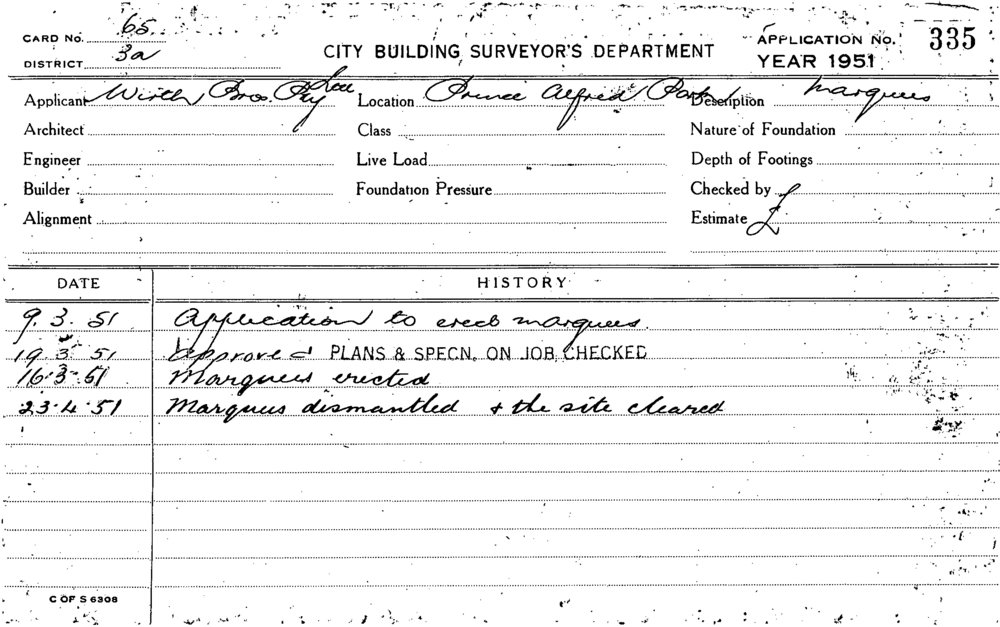 CARD No. 65
DISTRICT 3a
CITY BUILDING SURVEYOR'S DEPARTMENT
APPLICATION No. 335
YEAR 1951
Applicant Wirth Bros. Pty Ltd Location Prince Alfred Park Description Marquees
Architect Class Nature of Foundation
Engineer Live Load Depth of Footings
Builder Foundation Pressure Checked by
Alignment Estimate £
DATE HISTORY
9.3.51 Application to erect marquees.
19 3 51 Approved PLANS & SPECN. ON JOB CHECKED
16.3.51 Marquees erected
23.4.51 Marquees dismantled & the site cleared
C OF S 6308